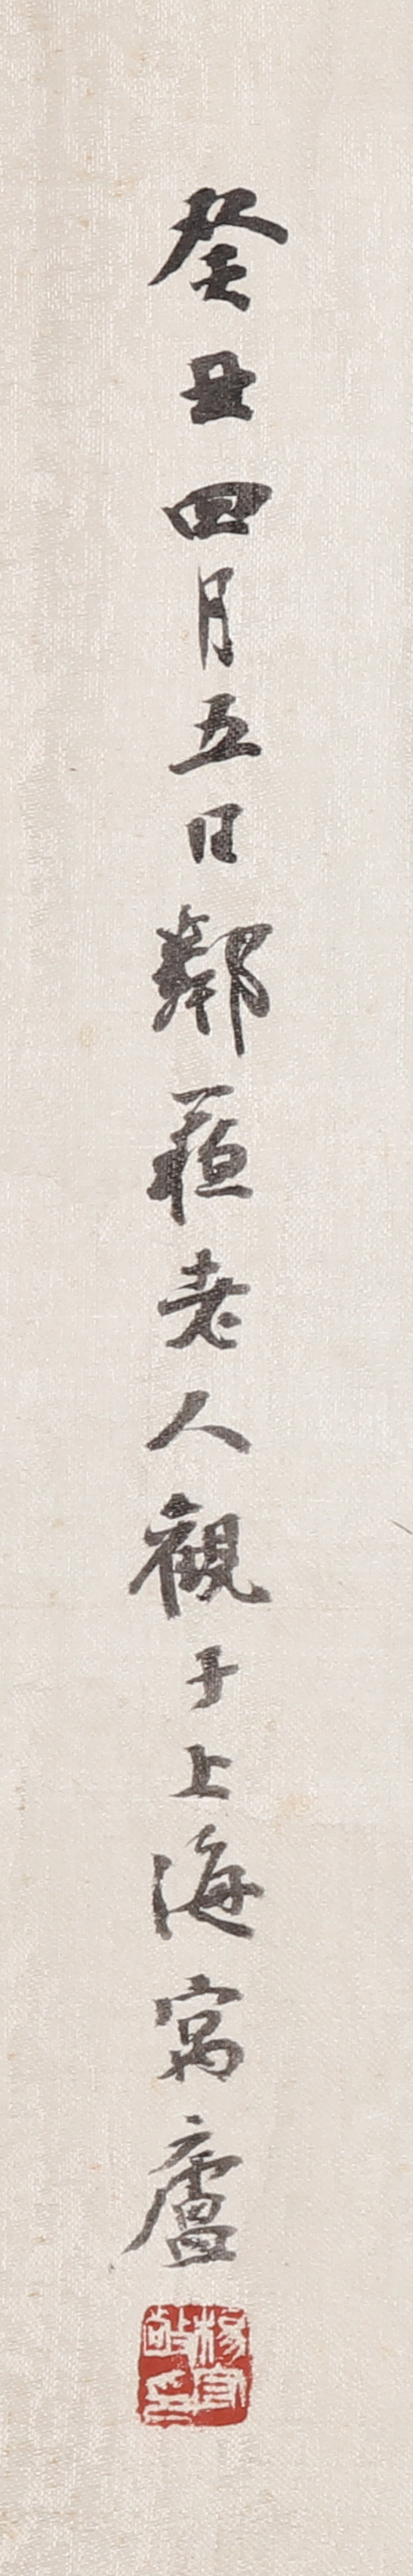 癸丑四月五日鄰蘇老人觀于上海寓廬
楊守敬印